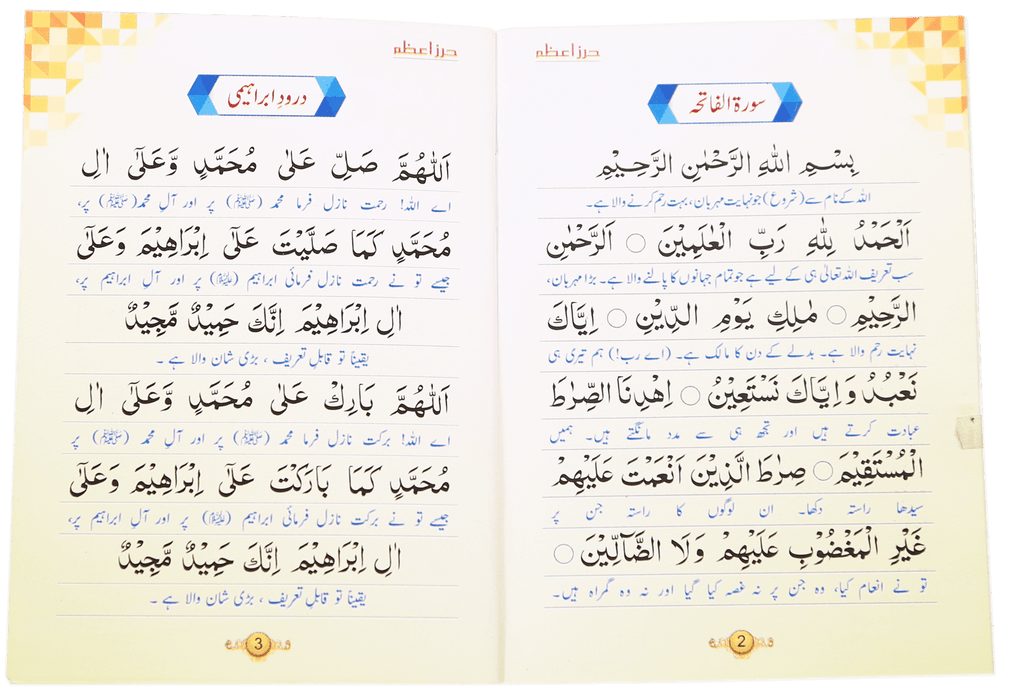 حرز اعظم
سورة الفاتحہ
بِسْمِ اللّٰهِ الرَّحْمٰنِ الرَّحِيْمِ
اللہ کے نام سے (شروع) جو نہایت مہربان، بہت رحم کرنے والا ہے۔
اَلْحَمْدُ لِلّٰهِ رَبِّ الْعٰلَمِيْنَ ○ الرَّحْمٰنِ
سب تعریف اللہ تعالیٰ ہی کے لیے ہے جو تمام جہانوں کا پالنے والا ہے۔ بڑا مہربان،
الرَّحِيْمِ ○ مٰلِكِ يَوْمِ الدِّيْنِ ○ اِيَّاكَ
نہایت رحم والا ہے۔ بدلے کے دن کا مالک ہے۔ (اے رب!) ہم تیری ہی
نَعْبُدُ وَ اِيَّاكَ نَسْتَعِيْنُ ○ اِهْدِنَا الصِّرٰطَ
عبادت کرتے ہیں اور تجھ ہی سے مدد مانگتے ہیں۔ ہمیں
الْمُسْتَقِيْمَ ○ صِرٰطَ الَّذِيْنَ اَنْعَمْتَ عَلَيْهِمْ
سیدھا راستہ دکھا۔ ان لوگوں کا راستہ جن پر
غَيْرِ الْمَغْضُوْبِ عَلَيْهِمْ وَلَا الضَّآلِّيْنَ ○
تو نے انعام کیا، وہ جن پر نہ غصہ کیا گیا اور نہ وہ گمراہ ہیں۔
2
حرز اعظم
درودِ ابراہیمی
اَللّٰهُمَّ صَلِّ عَلٰى مُحَمَّدٍ وَّعَلٰٓى اٰلِ
اے اللہ! رحمت نازل فرما محمد (ﷺ) پر اور آلِ محمد (ﷺ) پر،
مُحَمَّدٍ كَمَا صَلَّيْتَ عَلٰٓى اِبْرَاهِيْمَ وَعَلٰٓى
جیسے تو نے رحمت نازل فرمائی ابراہیم (علیہ السلام) پر اور آلِ ابراہیم پر،
اٰلِ اِبْرَاهِيْمَ اِنَّكَ حَمِيْدٌ مَّجِيْدٌ
یقیناً تو قابلِ تعریف، بڑی شان والا ہے۔
اَللّٰهُمَّ بَارِكْ عَلٰى مُحَمَّدٍ وَّعَلٰٓى اٰلِ
اے اللہ! برکت نازل فرما محمد (ﷺ) پر اور آلِ محمد (ﷺ) پر
مُحَمَّدٍ كَمَا بَارَكْتَ عَلٰٓى اِبْرَاهِيْمَ وَعَلٰٓى
جیسے تو نے برکت نازل فرمائی ابراہیم (علیہ السلام) پر اور آلِ ابراہیم پر،
اٰلِ اِبْرَاهِيْمَ اِنَّكَ حَمِيْدٌ مَّجِيْدٌ
یقیناً تو قابلِ تعریف، بڑی شان والا ہے۔
3